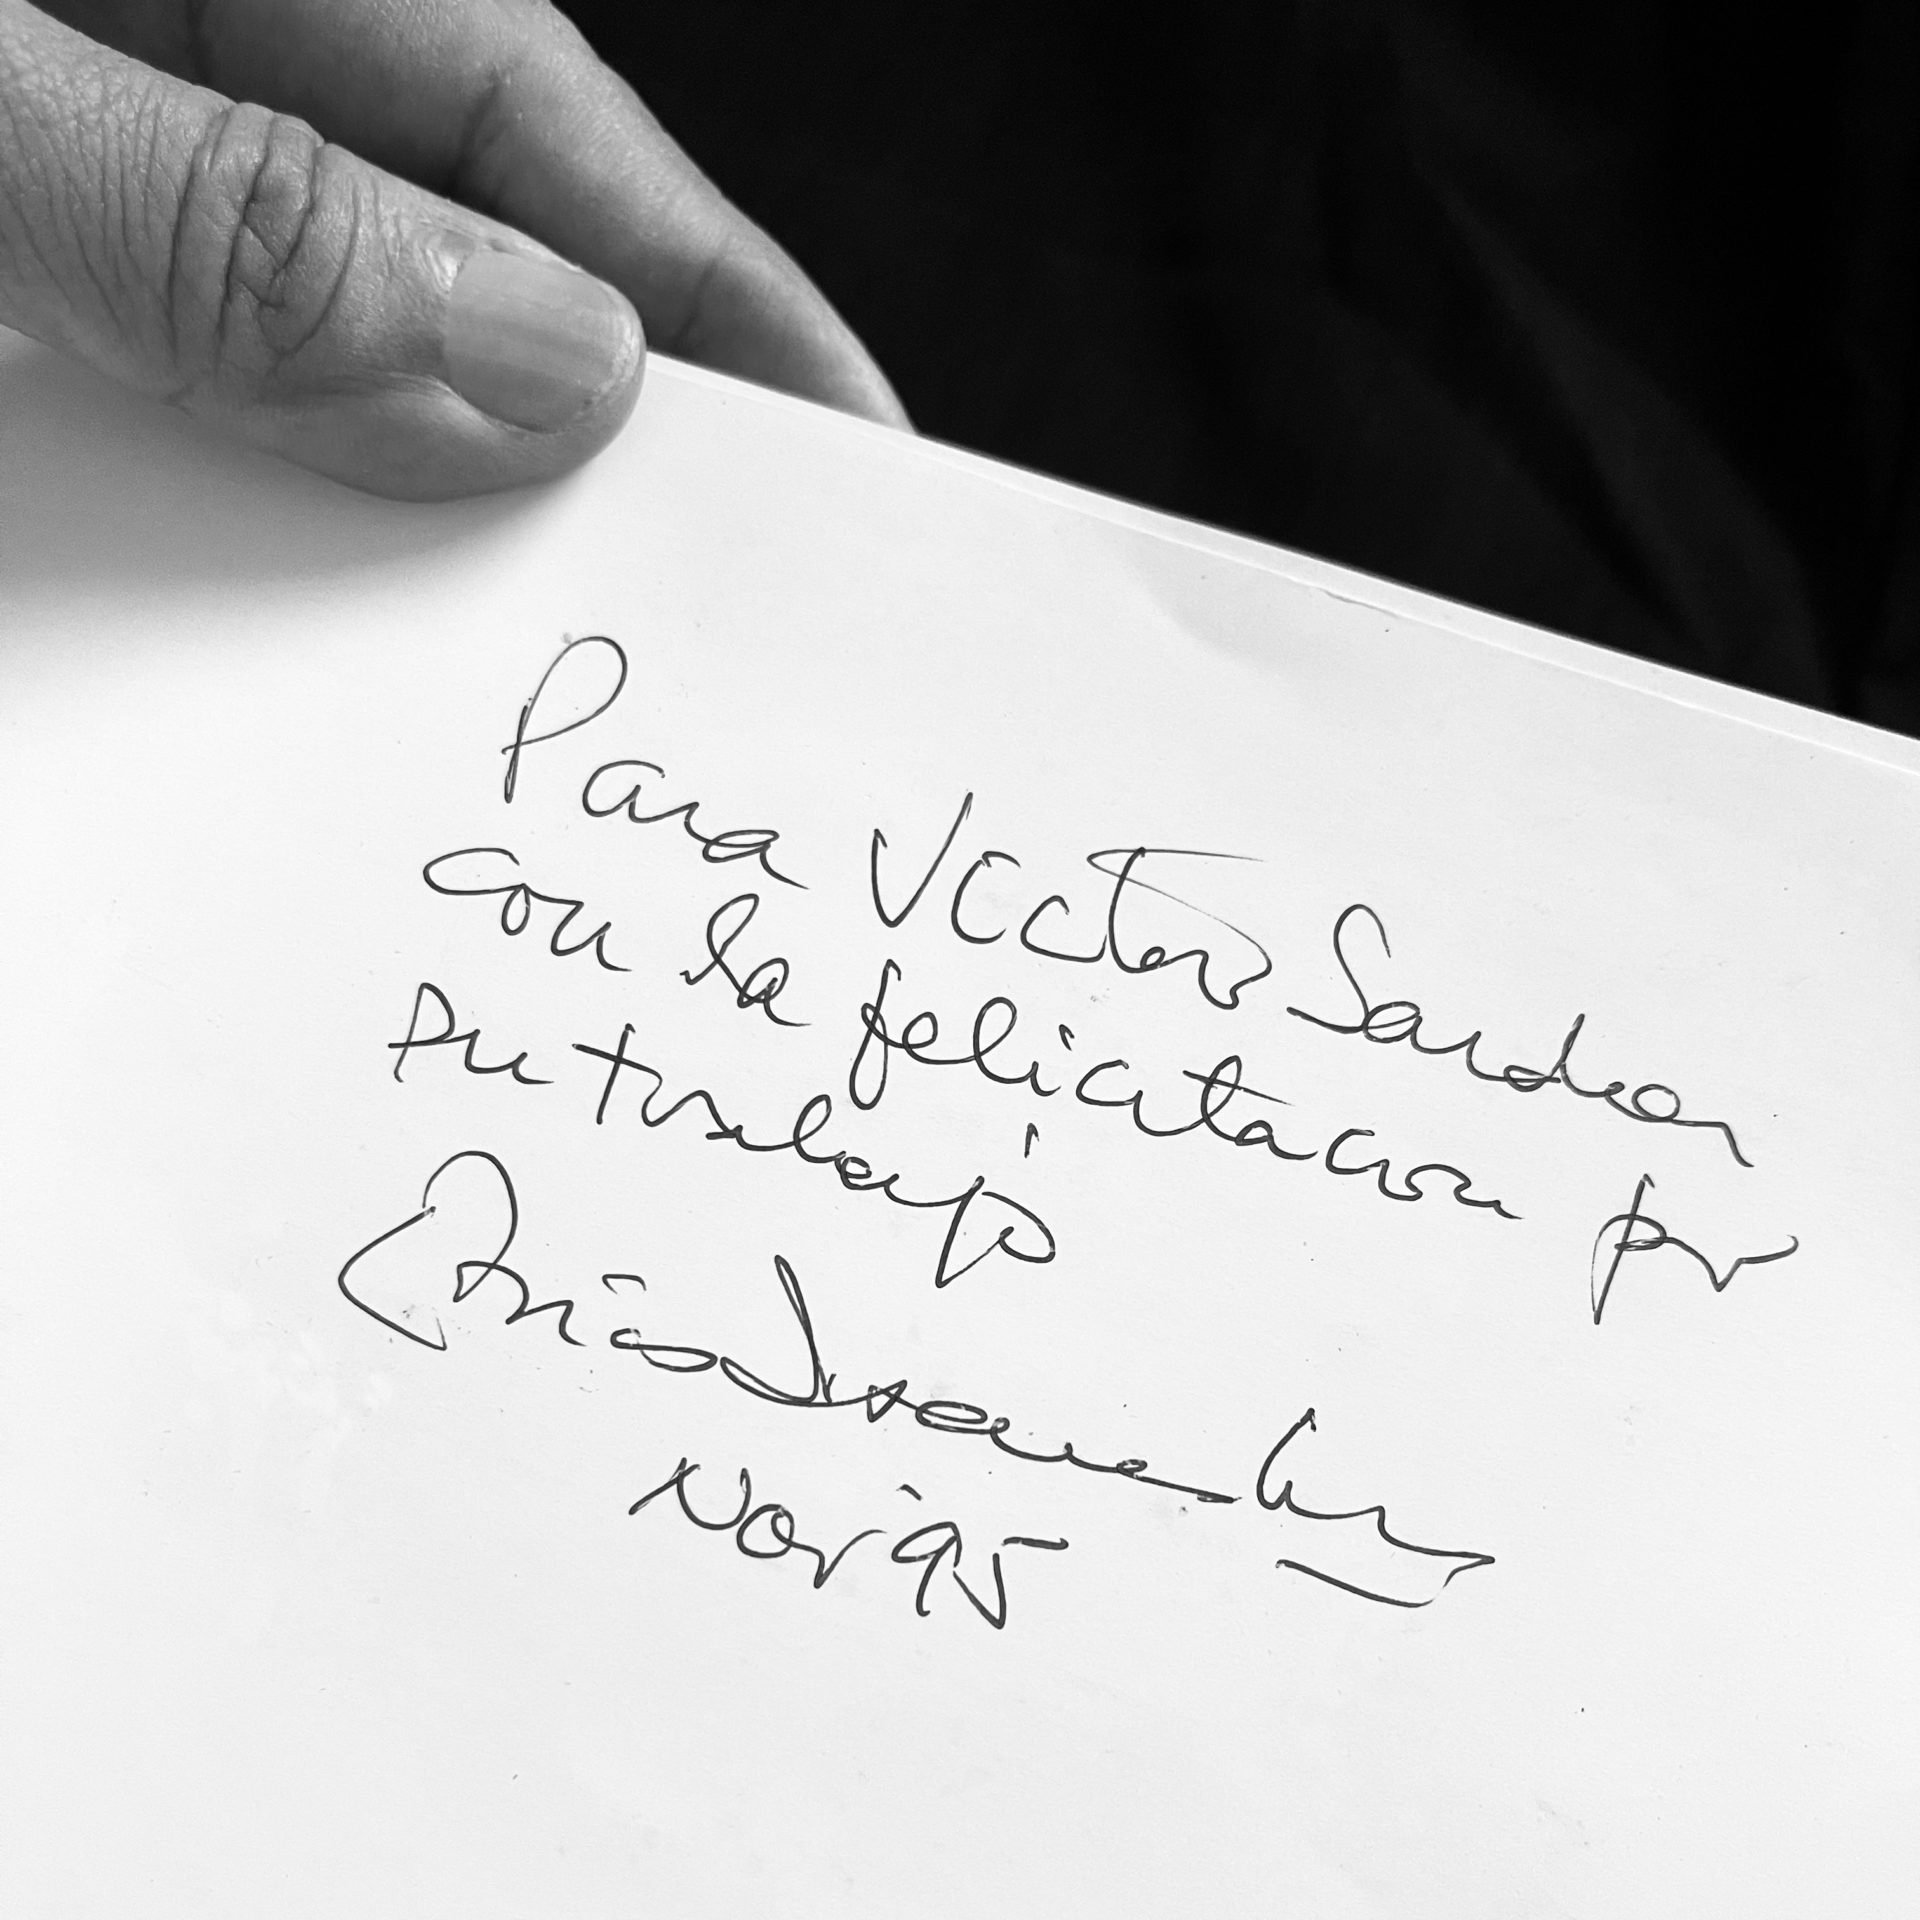 Para Victor Sardon
con la felicitacion por
su trabajo
Nov '95